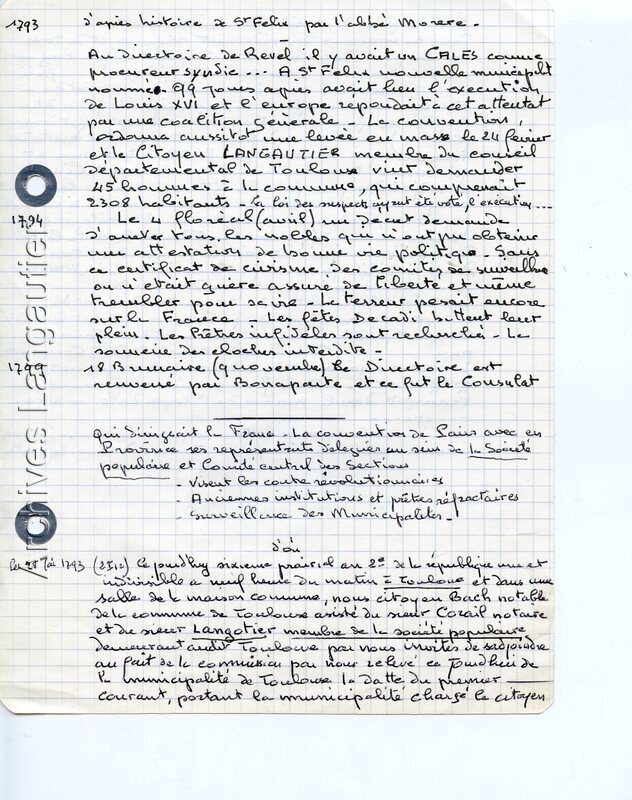 1793 d'après histoire de St Felix par l'abbé Morere -
Au Directoire de Revel il y avait un CALES comme
procureur syndic... A St Felix nouvelle municipalité
nommée. 99 jours après avait lieu l'execution
de Louis XVI et l'europe repondait à cet attentat
par une coalition générale - La convention,
ordonna aussitôt une levée en masse le 24 février
et le Citoyen LANGAUTIER membre du conseil
départemental de Toulouse vint demander
45 hommes à la commune, qui comprenait
2308 habitants - La loi des suspects ayant été voté, l'exécution...
1794 Le 4 floréal (avril) un décret demande
d'arreter tous les nobles qui n'ont pu obtenir
une attestation de bonne vie politique - Sans
ce certificat de civisme des comités de surveillance
on n'était guière assuré de liberté et même
trembler pour sa vie - La terreur pesait encore
sur la France - Les fêtes Decadi battent leur
plein. Les Prêtres infidèles sont recherchés - La
sonnerie des cloches interdite -
1799 18 Brumaire (9 novembre) le Directoire est
renversé par Bonaparte et ce fut le Consulat
qui dirigeait la France - La convention de Paris avec en
Province ses représentants délégués au sein de la Société
populaire et Comité central des Sections
- Visent les contre révolutionnaires
- Anciennes institutions et prêtres réfractaires
- Surveillance des Municipalités -
d'où
1793 Ce jourd'huy sixieme prairial an 2e de la république une et
indivisible a neuf heure du matin à Toulouse et dans une
salle de la maison commune, nous citoyen Bach notable
de la commune de Toulouse assisté du sieur Corail notaire
et du sieur Langotier membre de la société populaire
demeurant audit Toulouse par nous invités de sadjoindre
au fait de la commission par nous relevé ce jourdhui de
la municipalité de Toulouse la datte du premier
courant, portant la municipalité chargé le citoyen
Archives Langautier